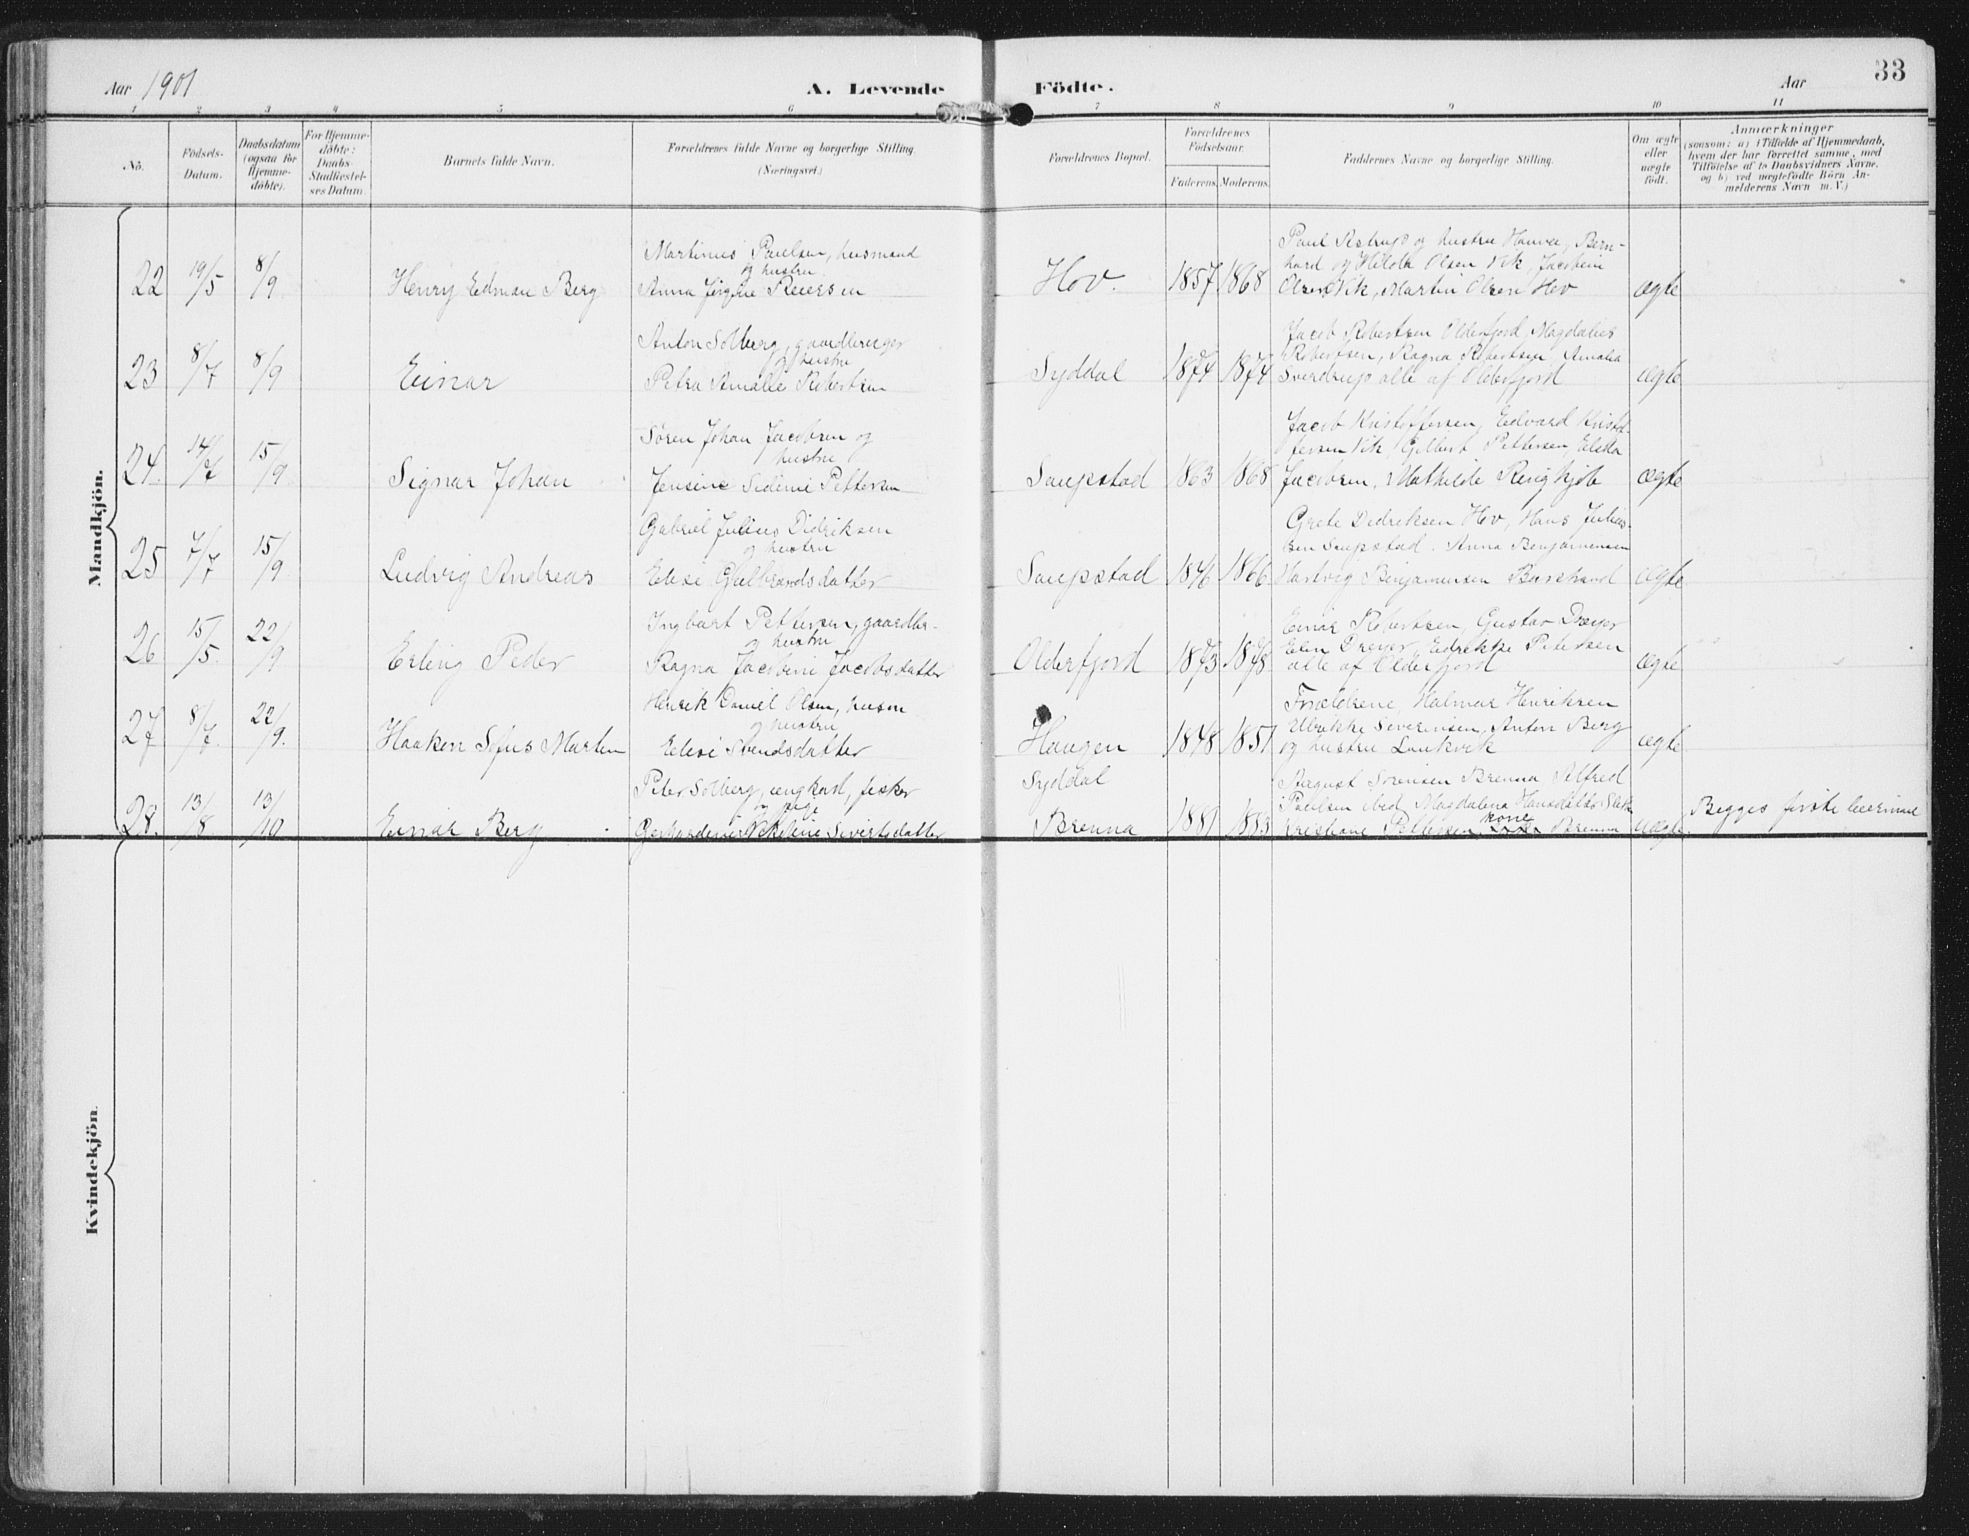 Aar 1901
A. Levende
Födte.
Aar
33
1 2 3 4 5 6 7 8 9 10 11
No.
Födsels-
Datum.
Daabsdatum
(ogsaa for
Hjemme-
döbte).
For Hjemme-
döbte:
Daabs-
Stadfæstel-
ses Datum.
Barnets fulde Navn.
Forældrenes fulde Navne og borgerlige Stilling.
(Næringsvei.)
Forældrenes Bopæl.
Forældrenes
Födselsaar.
Faderens.
Moderens.
Faddernes Navne og borgerlige Stilling.
Om ægte
eller
uægte
födt.
Anmærkninger
(saasom: a) i Tilfælde af Hjemmedaab,
hvem der har forrettet samme, med
Tilföielse af to Daabsvidners Navne.
og b) ved uægtefödte Börn An-
melderens Navn m. V.)
Mandkjön.
22 19/5 8/9 Henry Edman Berg
Martinus Paulsen, husmand
og hustru
Anna Jørgine Reiersen
Hov. 1857 1868
Paul Astrup og hustru Hanna, Bern-
hard og Hilda Olsen Vik, Jacobine
Olsen Vik, Martin Olsen Hov
ægte
23 8/7 8/9 Einar
Anton Solberg, gaardbruger
og hustru
Petra Amalie Robertsen
Syddal 1874 1874
Jacob Robertsen Olderfjord, Magdalius
Robertsen, Ragna Robertsen Amalia
Sverdrup alle af Olderfjord
ægte
24. 14/7 15/9 Signar Johan
Søren Johan Jacobsen og
hustru
Jensine Sidenie Pettersen
Saupstad 1863 1868
Jacob Kristoffersen, Edvard Kristof-
fersen Vik, Gilbert Pettersen,
Jacobsen, Mathilde
ægte
25 7/7 15/9 Ludvig Andreas
Gabriel Julius Didriksen
og hustru
Elise Gulbrandsdatter
Saupstad 1846 1866
Grete Didriksen Hov, Hans Julius-
sen Saupstad. Anna Benjaminsen
Hartvig Benjaminsen
ægte
26 15/5. 22/9 Erling Peder
Ingbart Pettersen, gaardbr.
og hustru
Ragna Jacobine Jacobsdatter
Olderfjord 1873 1878
Einar Robertsen, Gustav Dreyer
Elen Dreyer, Edrikke Petersen
alle af Olderfjord
ægte
27 8/7. 22/9. Haakon Sofus Martin
Henrik Daniel Olsen, husm
og hustru
Elise Svendsdatter
Haugen 1848 1851
Forældrene, Halmar Henriksen
Ulrikke Severinsen, Anton Berg
og hustru Laukvik
ægte
28. 13/8 13/10 Einar Berg
Peder Solberg, ungkarl, fisker
og pige
Gerhardine Nekoline Sivertsdatter
Syddal
Brenna 1881 1883
August Sørensen Brenna Alfred
Paulsen ibid, Magdalena Hansdatter
kone
Kristiane Pettersen, Brenna
uægte
Begges første leiermaal
Kvindekjön.